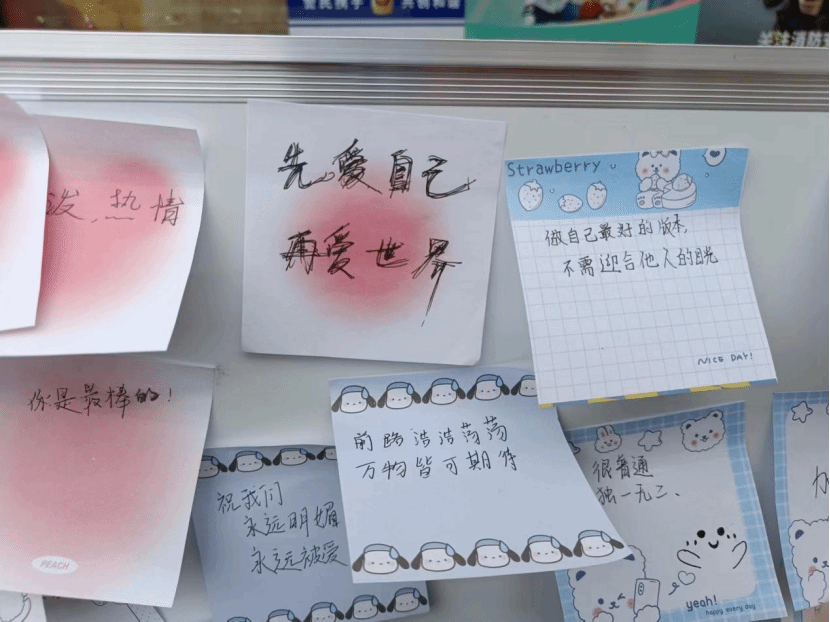 警民携手
共筑和谐
关注消防
泼,热情
先爱自己
再爱世界
Strawberry
做自己最好的版本,
不需迎合他人的目光
NICE DAY!
你是最棒的!
PEACH
祝我们
永远明媚
永远被爱
前路浩浩荡荡
万物皆可期待
很普通
独一无二、
yeah!
happy every day